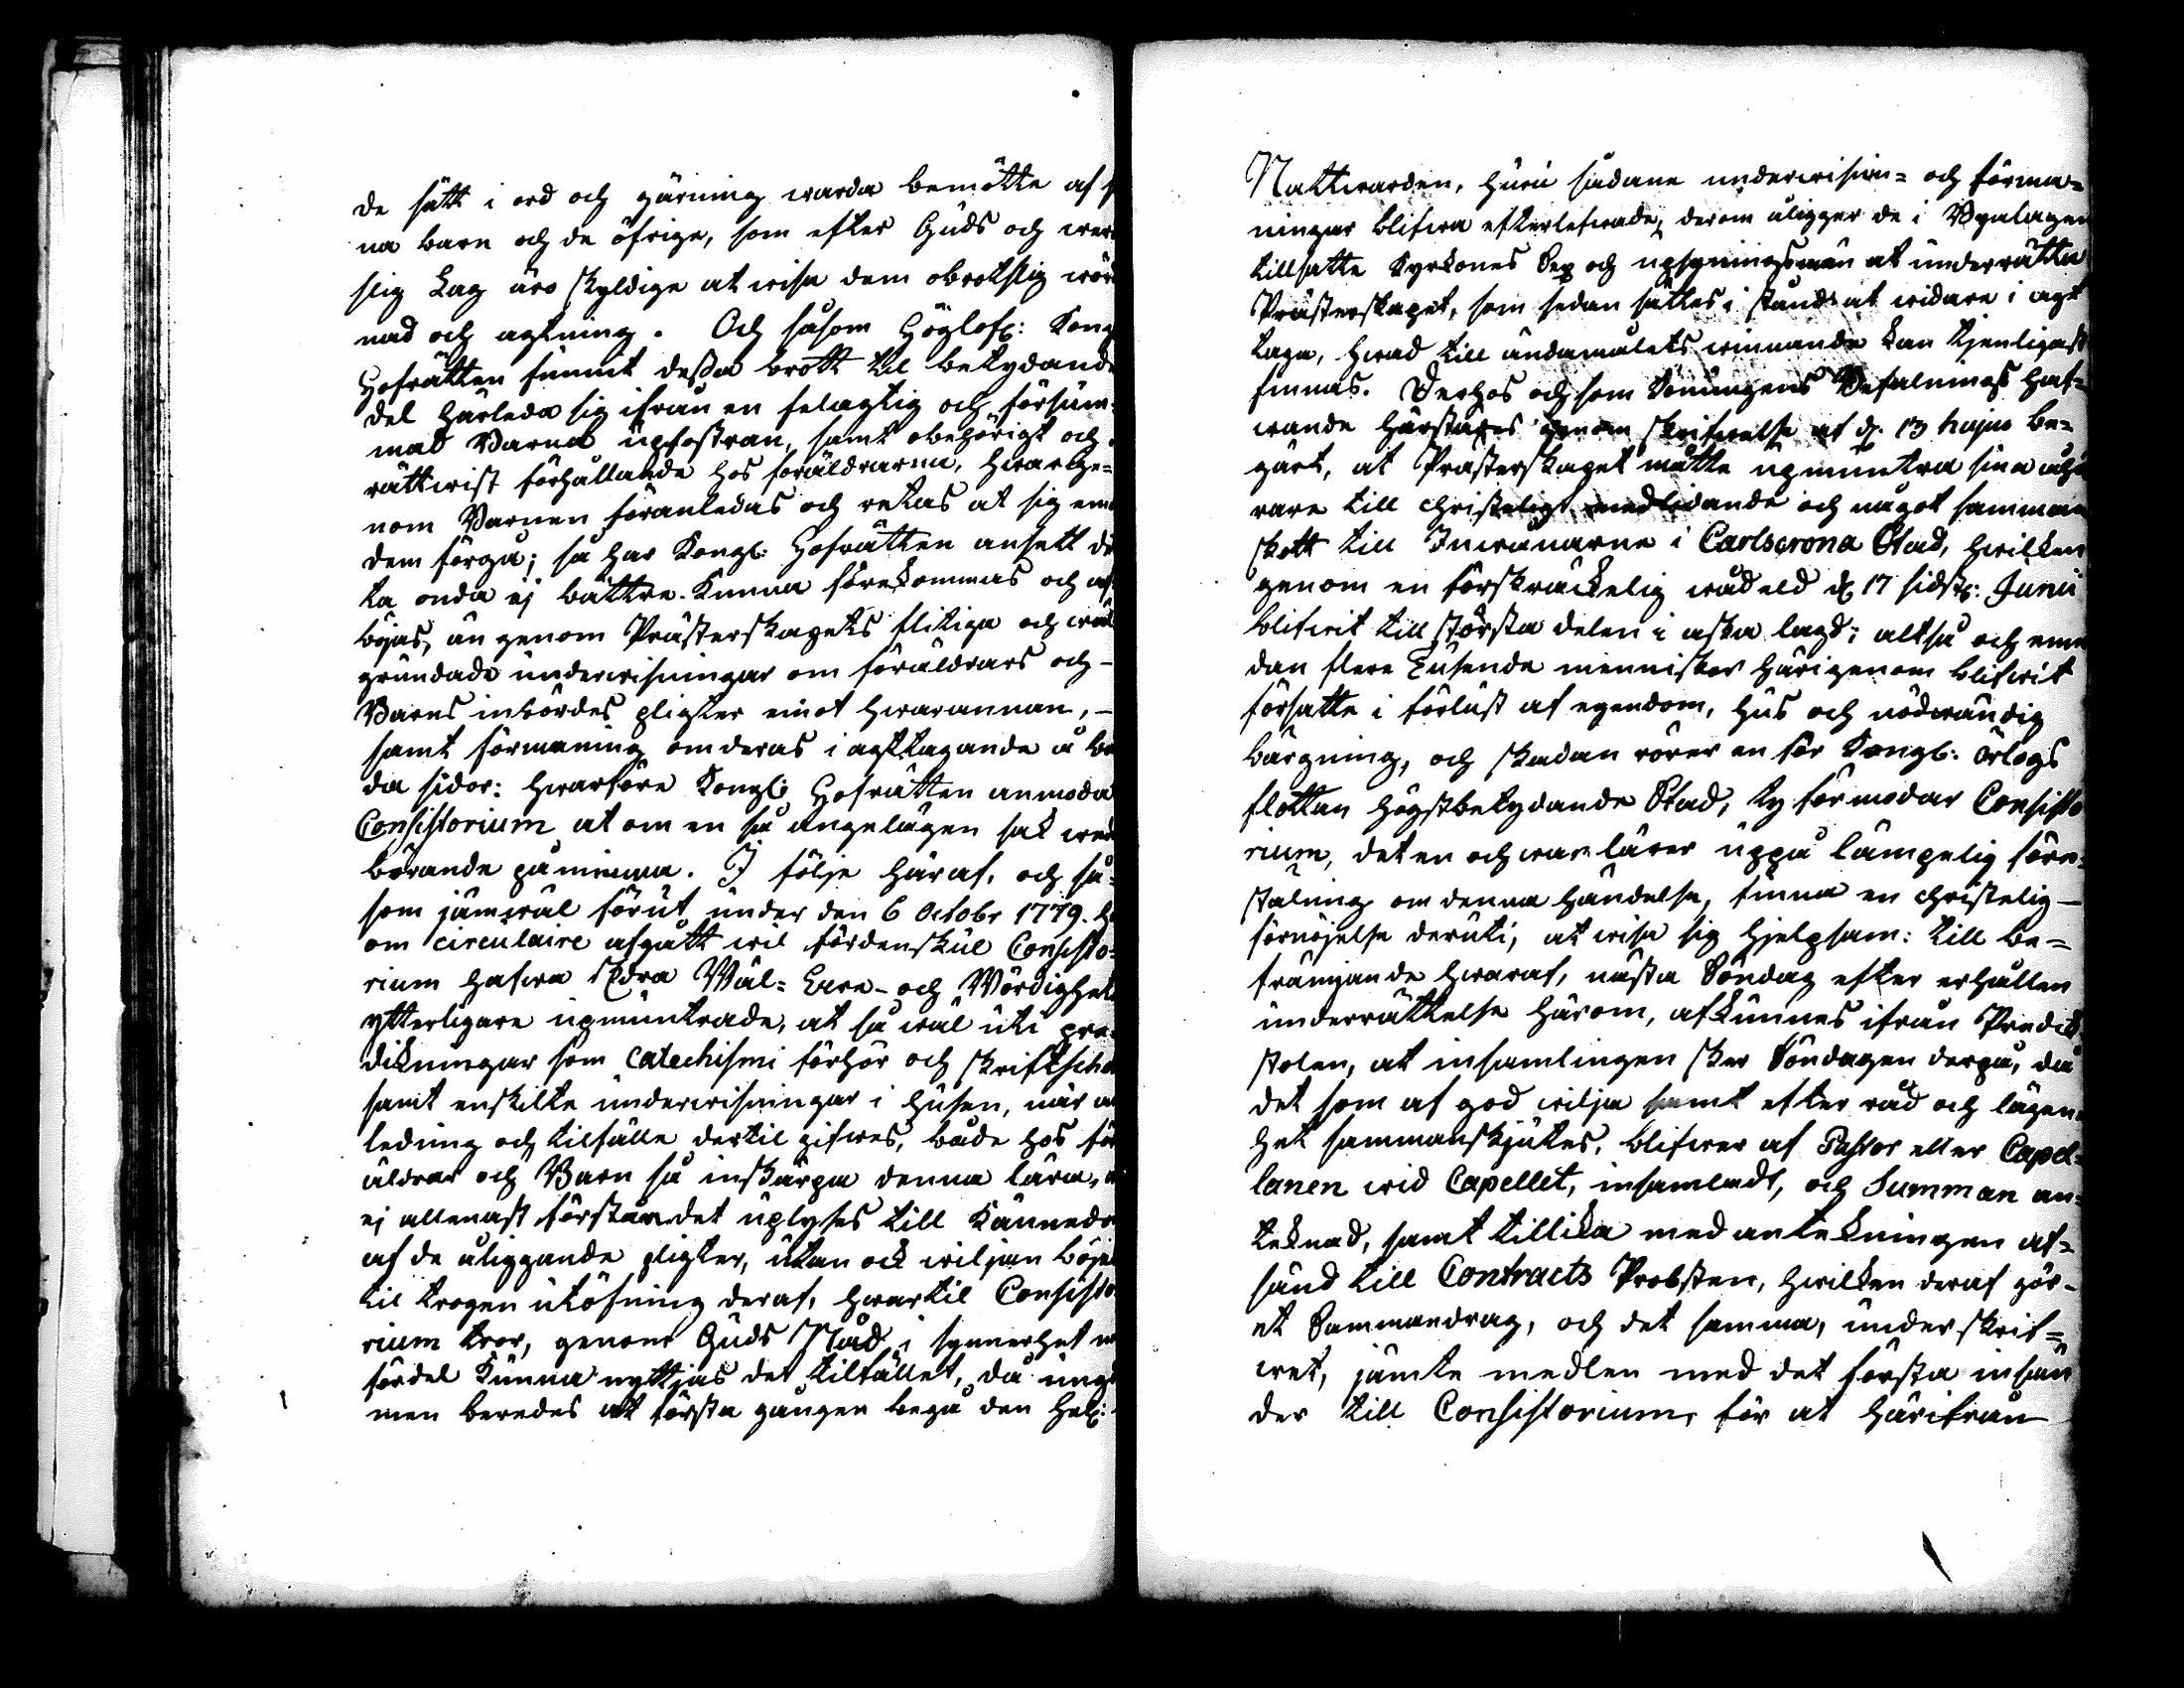 de sätt i ord och gärning warda bemötte af
na barn och de öfrige, som efter Guds och
slig Lag äro skyldige at wisa dem obrotslig wörd
nad och agtning. Och såsom Höglofl: Kong
Hofrätten funnit dessa brott til betydande
del härleda sig ifrån en felagtig och försüm-
mad Barna upfostran, samt obehörigt och
rättwist förhållande hos föräldrarna, hwarige-
nom Barnen föranledas och retas at sig emo
dem förgå; så har Kongl: Hofrätten ansett de
ta onda ej bättre kunna förekommas och af
böjas, än genom Prästerskapets flitiga och wäl
grundade underwisningar om föräldrars och
Barns inbördes pligter emot hwarannan,
samt förmaning om deras i agttagande å bå
da sidor: hwarföre Kongl: Hofrätten anmoda
Consistorium at om en så angelägen sak wed
börande påminna. I följe häraf, och så-
som jämwäl förut under den 6 Octobr 1779. h
om circulaire afgått wil fördenskul Consisto-
rium hafwa Edra Wäl- Ehre- och Wördighet
ytterligare upmuntrade, at så wäl uti pre-
dikningar som Catechismi förhör och skriftscho
samt enskilte underwisningar i husen, när an
ledning och tilfälle dertil gifwes, både hos för
äldrar och Barn så inskärpa denna lära, a
ej allenast förståndet uplyses till kännedo
af de åliggande pligter, utan ock wiljan böjes
til trogen utöfning deraf, hwartil Consisto
rium tror, genom Guds Nåd i synnerhet m
fördel kunna nyttjas det tilfället, då ung
men beredes att första gången begå den Hel:
Nattwarden, huru sådane underwisnin- och förma-
ningar blifwa efterlefwade, derom åligger de i Byalagen
tillsatte Kyrkones Sex och upsyningsmän at underrätta
Prästerskapet, som sedan sättes i stånd at widare i agt
taga, hwad till ändamålets winnande kan tjenligast
finnas. Derhos och som Konungens Befalnings haf-
wande härstädes genom skrifwelse af d. 13 hujus be-
gärt, at Prästerskapet måtte upmuntra sina åhö
rare till christeligt medlidande och något samman
skott till Inwånarne i Carlscrona Stad, hwilken
genom en förskräckelig wådeld d. 17 sidstl: Junii
blifwit till största delen i aska lagd; altså och eme
dan flere Tusende menniskor härigenom blifwit
försatte i förlust af egendom, hus och nödwändig
bärgning, och skadan rörer en för Kongl: Örlogs
flottan högstbetydande Stad, ty förmodar Consisto
rium, det en och war lärer uppå lämpelig före-
stälning om denna händelse, finna en christelig
förnöjelse deruti, at wisa sig hjelpsam: till be-
främjande hwaraf, nästa Söndag efter erhållen
underrättelse härom, afkunnes ifrån Predik
stolen, at insamlingen sker Söndagen derpå, då
det som af god wilja samt efter råd och lägen
het sammanskjutes, blifwer af Pastor eller Capel-
lanen wid Capellet, insamladt, och Summan an-
teknad, samt tillika med antekningen af-
sänd till Contracts Probsten, hwilken deraf gör-
et Sammandrag, och det samma, underskrif-
wet, jämte medlen med det första insän
der till Consistorium, för at härifrån